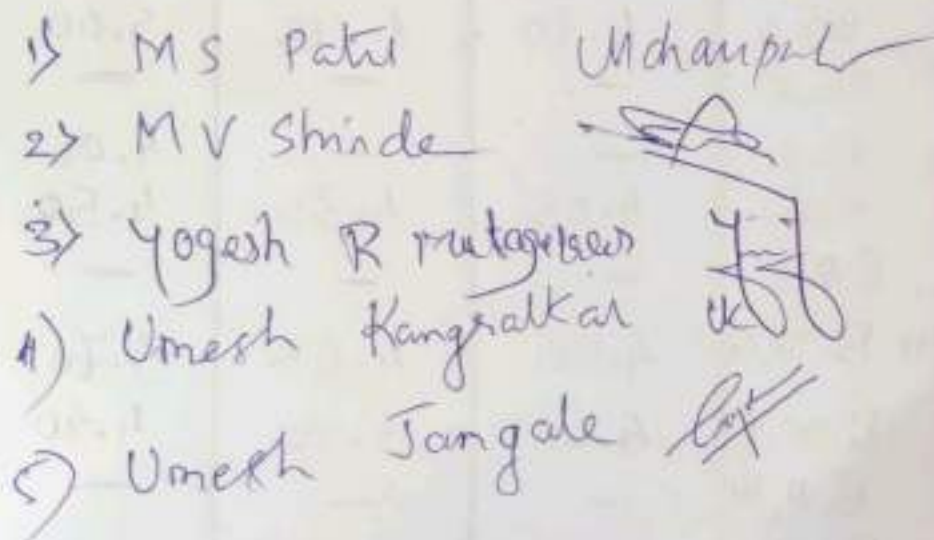 1) M S Patil
2) M V Shinde
3) Yogesh R
4) Umesh Kangralkar UK
5) Umesh Jangale